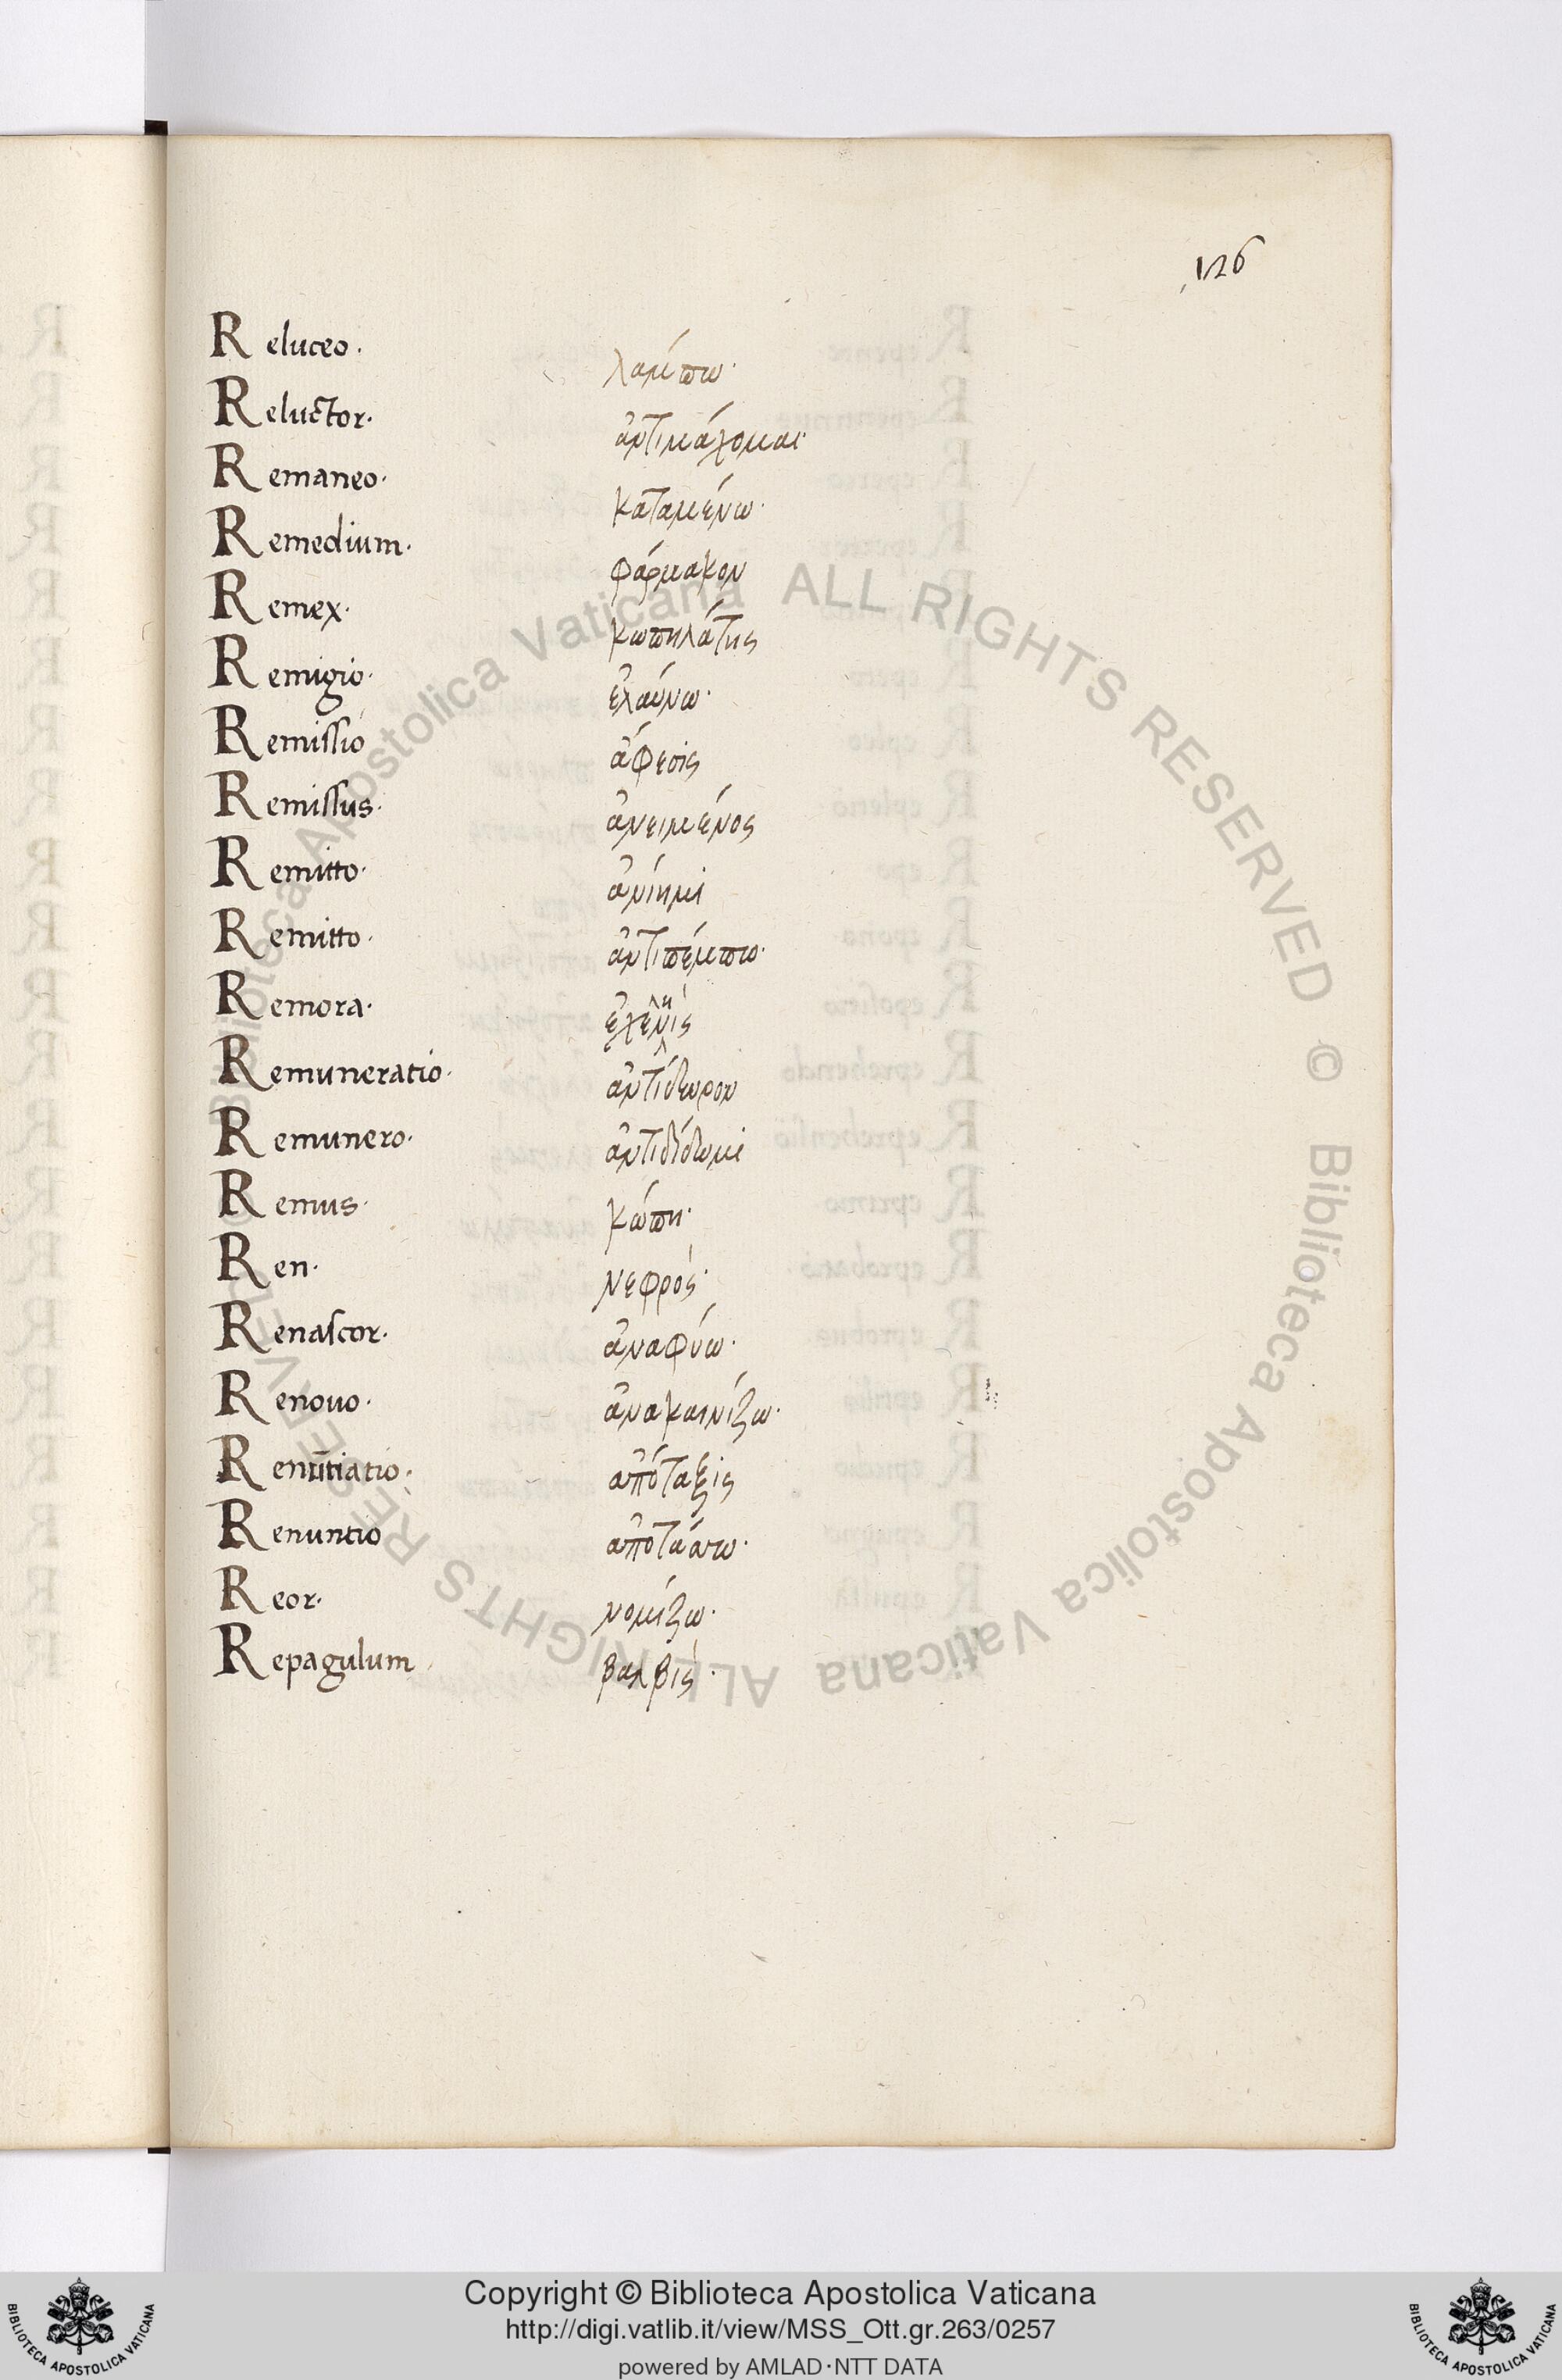 126
Reluceo. λάμπω.
Reluctor. ἀντιμάχομαι.
Remaneo. καταμένω.
Remedium. φάρμακον
Remex. κωπηλάτης
Remigio. ἐλαύνω.
Remissio ἄφεσις
Remissus. ἀνειμένος
Remitto. ἀνίημι
Remitto. ἀντιπέμπω.
Remora.
Remuneratio. ἀντίδωρον
Remunero. ἀντιδίδωμι
Remus. κώπη.
Ren. νεφρός.
Renascor. ἀναφύω.
Renouo. ἀνακαινίζω.
Renūtiatio. ἀπόταξις
Renuntio
Reor. νομίζω.
Repagulum βαλβίς.
Biblioteca Apostolica Vaticana ALL RIGHTS RESERVED © Biblioteca Apostolica Vaticana ALL RIGHTS RESERVED ©
Copyright © Biblioteca Apostolica Vaticana
http://digi.vatlib.it/view/MSS_Ott.gr.263/0257
powered by AMLAD·NTT DATA
BIBLIOTECA APOSTOLICA VATICANA
BIBLIOTECA APOSTOLICA VATICANA